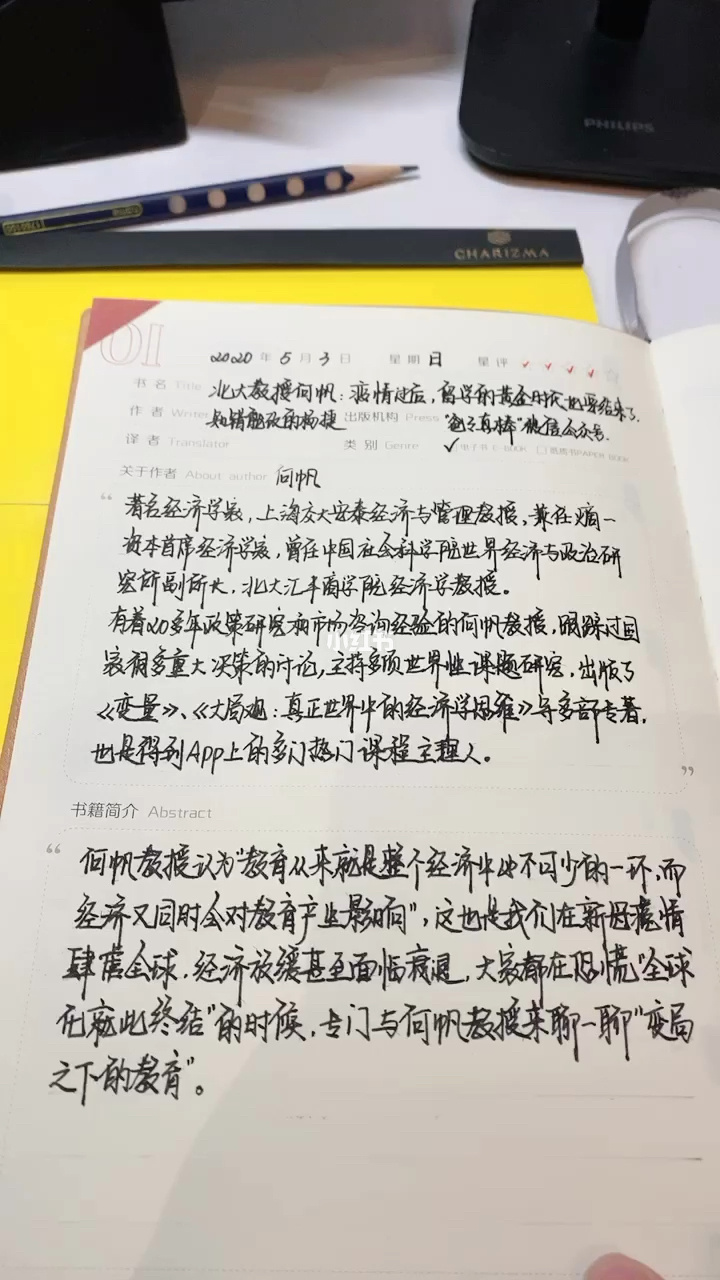 PHILIPS
CHARIZMA
01
2020 年 5 月 3 日 星期 日 星评 ✓ ✓ ✓ ✓
书名 Title 北大教授何帆：疫情过后，留学的黄金时代也要结束了.
作者 Writer 知错能改的杨捷 出版机构 Press "爸爸真棒"微信公众号.
译者 Translator 类别 Genre ✓ 电子书 E-BOOK □ 纸质书 PAPER BOOK
关于作者 About author 何帆
著名经济学家，上海交大安泰经济与管理教授，兼任熵一
资本首席经济学家，曾任中国社会科学院世界经济与政治研
究所副所长，北大汇丰商学院经济学教授。
有着20多年政策研究和市场咨询经验的何帆教授，跟踪过国
家很多重大决策的讨论，主持多项世界性课题研究，出版了
《变量》、《大局观：真正世界中的经济学思维》等多部专著，
也是得到App上的多门热门课程主理人。
小红书
书籍简介 Abstract
何帆教授认为"教育从来就是整个经济中必不可少的一环，而
经济又同时会对教育产业影响"，这也是我们在新冠疫情
肆虐全球，经济放缓甚至面临衰退，大家都在恐慌"全球
化就此终结"的时候，专门与何帆教授来聊一聊"变局
之下的教育"。